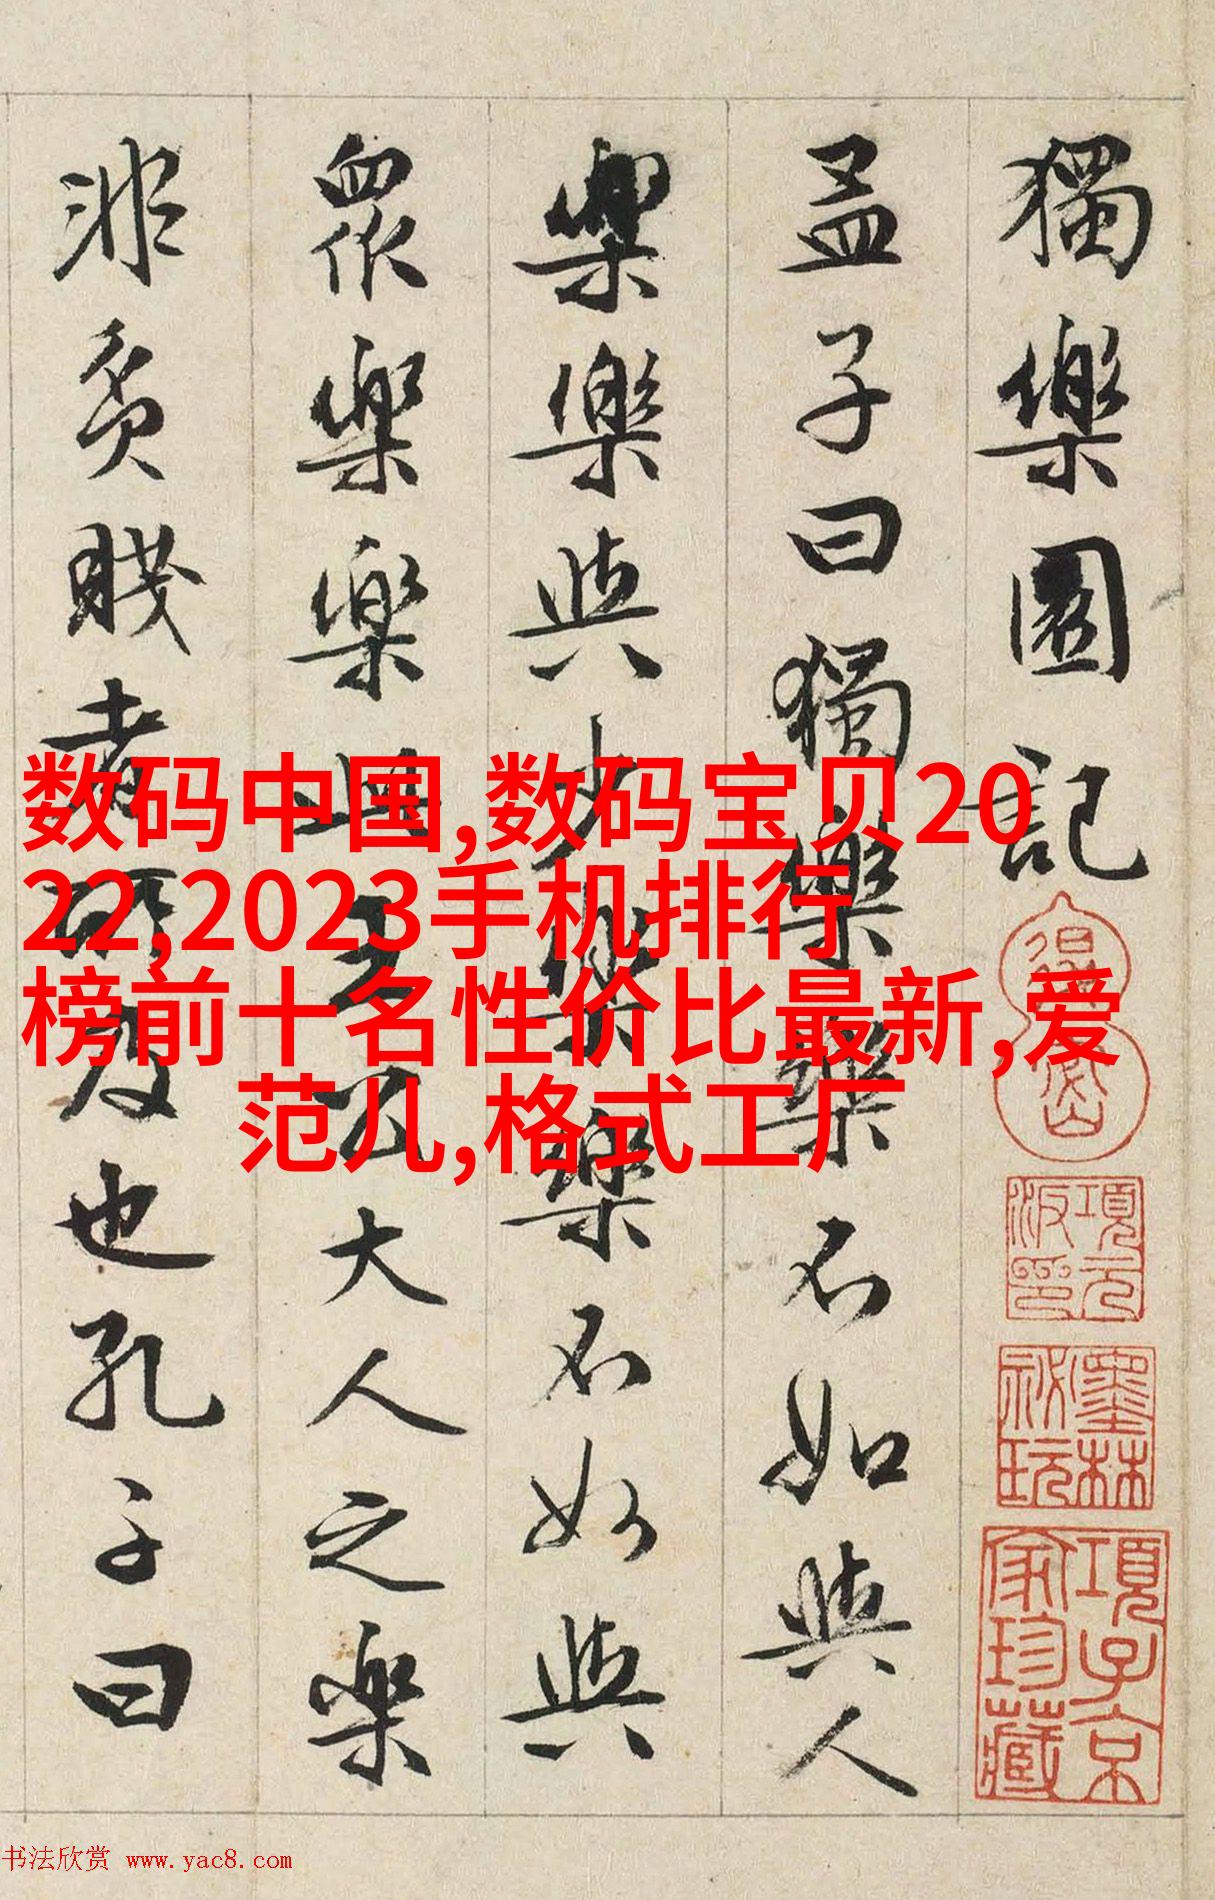 獨樂園記
孟子曰獨樂樂不如與人
樂樂與少樂樂不如與
眾樂樂此王公大人之樂
非貧賤者所及也孔子曰
项元汴印
墨林秘玩
項子京家珍藏
数码中国,数码宝贝20
22,2023手机排行
榜前十名性价比最新,爱
范儿,格式工厂
书法欣赏 www.yac8.com